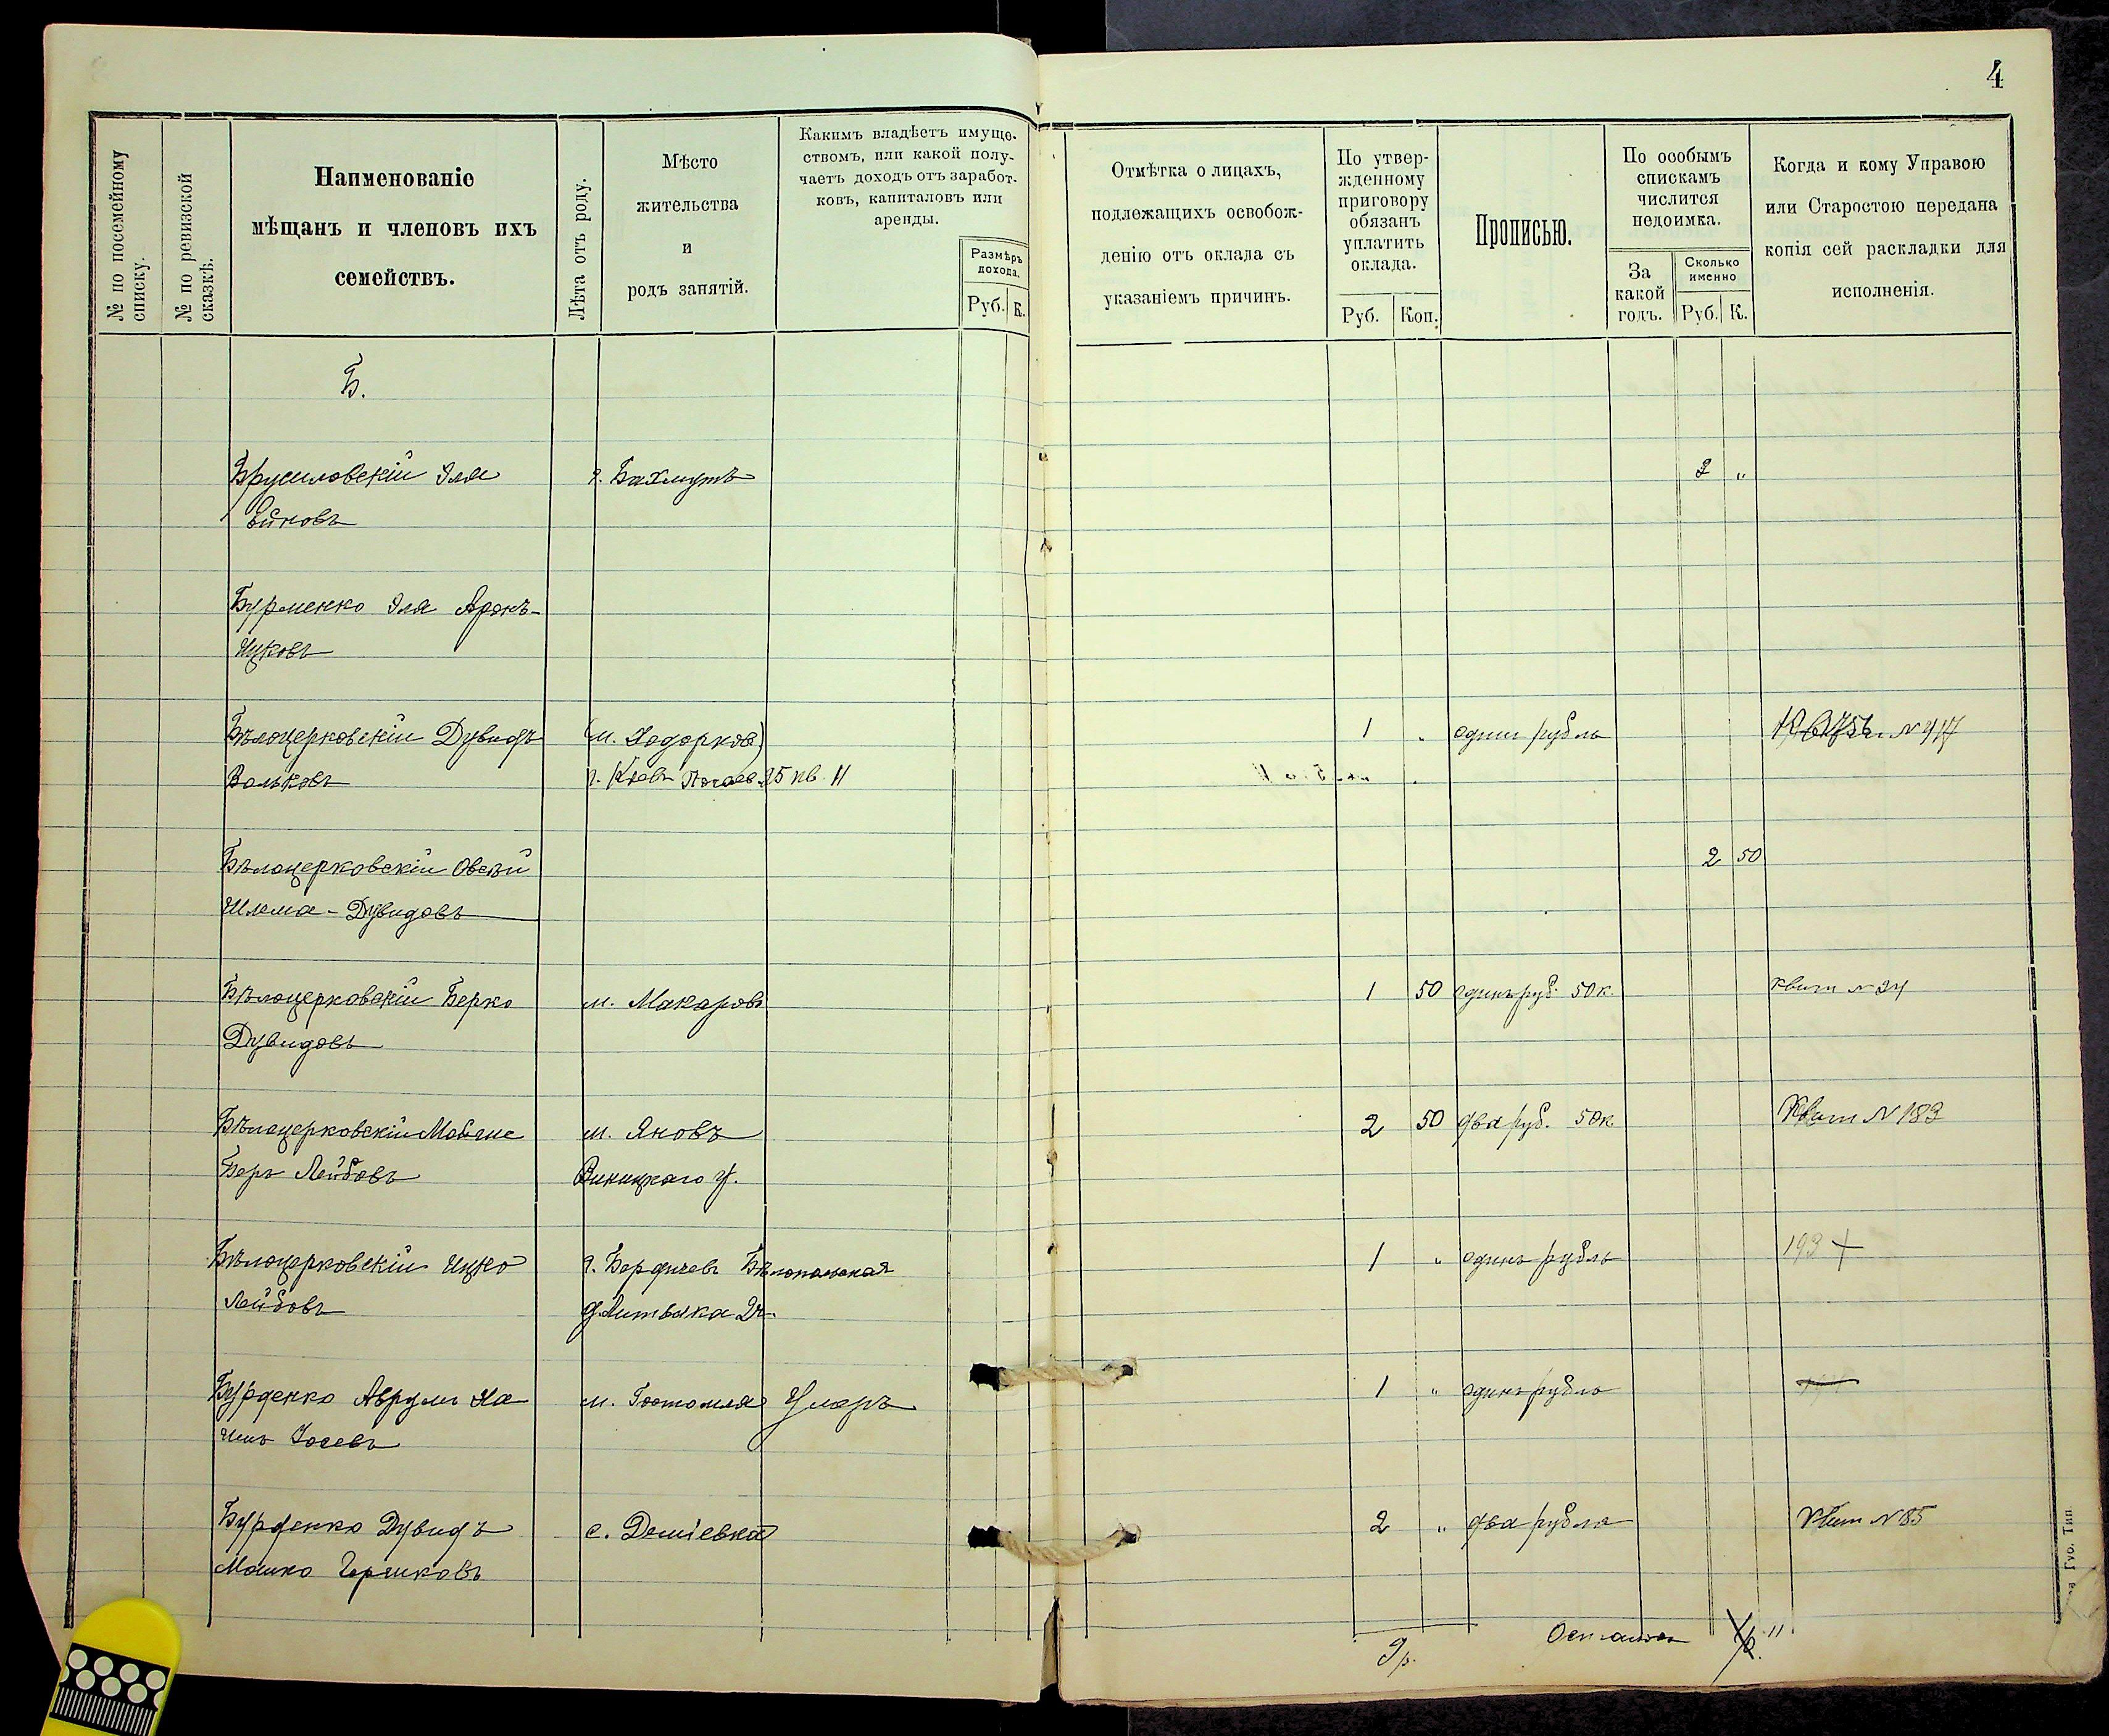 4
№ по посемейному списку.
№ по ревизской сказкѣ.
Наименованіе
мѣщанъ и членовъ ихъ
семействъ.
Лѣта отъ роду.
Мѣсто
жительства
и
родъ занятій.
Какимъ владѣетъ имуще-
ствомъ, или какой полу-
чаетъ доходъ отъ заработ-
ковъ, капиталовъ или
аренды.
Размѣръ
дохода.
Руб. К.
Отмѣтка о лицахъ,
подлежащихъ освобож-
денію отъ оклада съ
указаніемъ причинъ.
По утвер-
жденному
приговору
обязанъ
уплатить
оклада.
Руб. Коп.
Прописью.
По особымъ
спискамъ
числится
недоимка.
За
какой
годъ.
Сколько
именно
Руб. К.
Когда и кому Управою
или Старостою передана
копія сей раскладки для
исполненія.
Б.
Брусиловскій Эля г. Бахмутъ 2 "
Бурменко Эля Аронъ-
Ицковъ
Бѣлоцерковскій Дувидъ (м. Ходорков) 1 " одинъ рубль
Вольковъ г. Кіевъ 25 кв. 11
Бѣлоцерковскій Овсѣй 2 50
Шлема-Дувидовъ
Бѣлоцерковскій Берко м. Макаровъ 1 50 одинъ руб. 50 к. Квит № 24
Дувидовъ
Бѣлоцерковскій Мойше м. Яновъ 2 50 два руб. 50 к. Квит № 183
Беръ Лейбовъ Виницкаго у.
Бѣлоцерковскій Ицко г. Бердичевъ Бѣлопольская 1 " одинъ рубль 193 +
Лейбовъ д. Литвака
Бурденко Аврумъ Ха м. Гостомля Умеръ 1 " одинъ рубль
имъ Іосевъ
Бурденко Дувидъ с. Деміевка 2 " два рубля Квит № 85
Мошко Гершковъ
9 р.
Губ. Тип.